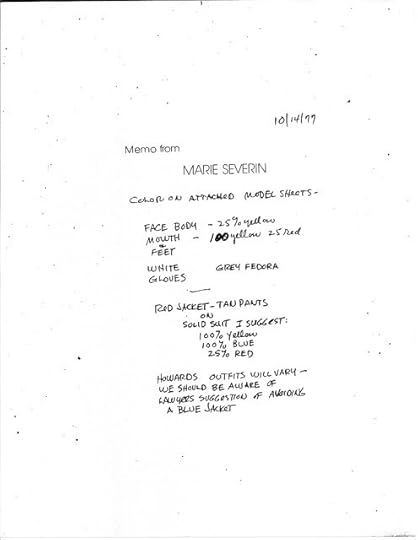 10/14/77
Memo from
MARIE SEVERIN
COLOR ON ATTACHED MODEL SHEETS -
FACE BODY - 25% yellow
MOUTH - 100 yellow 25 red
&
FEET
WHITE GREY FEDORA
GLOVES
RED JACKET - TAN PANTS
ON
SOLID SUIT I SUGGEST:
100% yellow
100% BLUE
25% RED
HOWARDS OUTFITS WILL VARY -
WE SHOULD BE AWARE OF
LAWYERS SUGGESTION OF AVOIDING
A BLUE JACKET